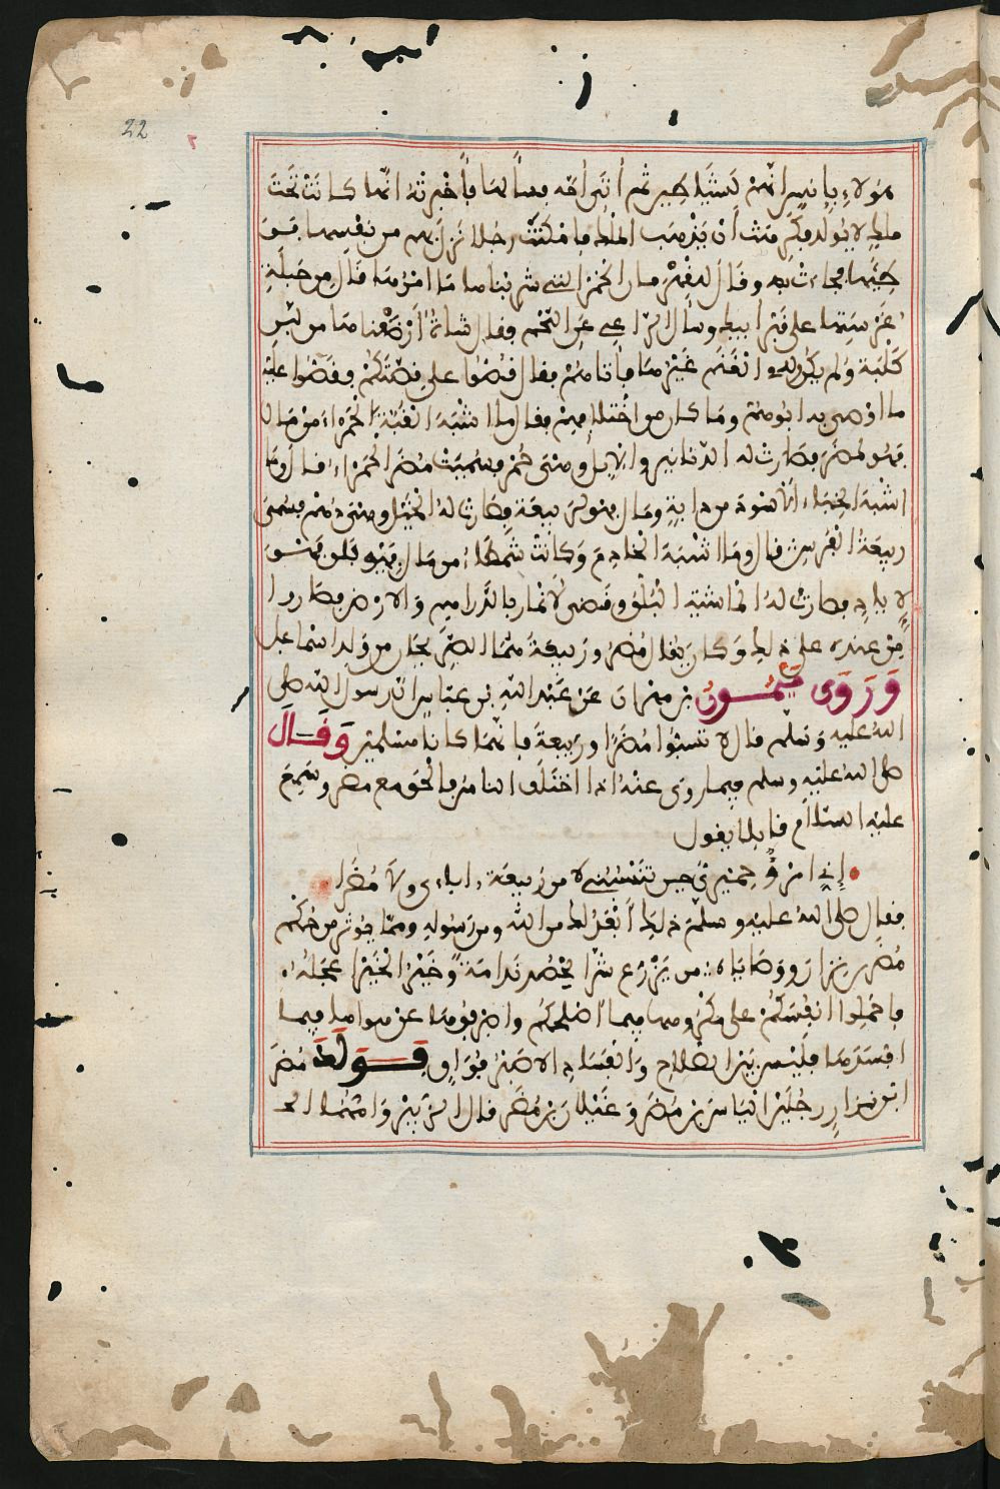 22
هؤلاء بإنسر انهن لشيا كبير ثم أتى أمه فسألها فأخبرته أنها كانت تحت
ملك لا يولد له فكرهت أن يذهب الملك فأمكنت رجلا نزل بهم من نفسها فوقع
عليها فجاءت به وقال للقهرمان الخمر التي شربناها ما امرها قال من حبلة
غرستها على قبر أبيك وسأل الراعي عن اللحم فقال شاة أرضعناها من لبن
كلبة ولم يكن ولد في الغنم غيرها فأتاهم فقال قصوا علي قصتكم فقصوا عليه
ما أوصى به أبوهم وما كان من اختلافهم فقال ما اشبه القبة الحمراء من مال
فهو لمضر فصارت له الدنانير والإبل وهي حمر فسميت مضر الحمراء قال وما
اشبه الخباء الأسود من دابة ومال فهو لربيعة فصارت له الخيل وهي دهم فسمي
ربيعة الفرس قال وما اشبه الخادم وكانت شمطاء من مال فيه بلق فهو
لإياد فصارت له الماشية البلق وقضى لأنمار بالدراهم والأرض فصاروا
من عنده على ذلك وكان يقال مضر وربيعة هما الصريحان من ولد اسماعيل
وروى ميمون بن مهران عن عبد الله بن عباس ان رسول الله صلى
الله عليه وسلم قال لا تسبوا مضر وربيعة فإنهما كانا مسلمين وقال
صلى الله عليه وسلم فيما روى عنه اذا اختلف الناس فالحق مع مضر وسمع
عليه السلام قائلا يقول
إني امرؤ حميري حين تنسبني لا من ربيعة اباءي ولا مضر
فقال صلى الله عليه وسلم ذلك أبعد لك من الله ومن رسوله ومما يوثر من حكم
مضر بن نزار ووصاياه من يزرع شرا يحصد ندامة وخير الخير اعجله
فاحملوا انفسكم على مكروهها فيما اصلحكم واصرفوها عن هواها فيما
افسدها فليس بين الصلاح والفساد الا صبر فواق فولد مضر
ابن نزار رجلين الياس بن مضر وعيلان بن مضر قال الزبير وامهما الحـ